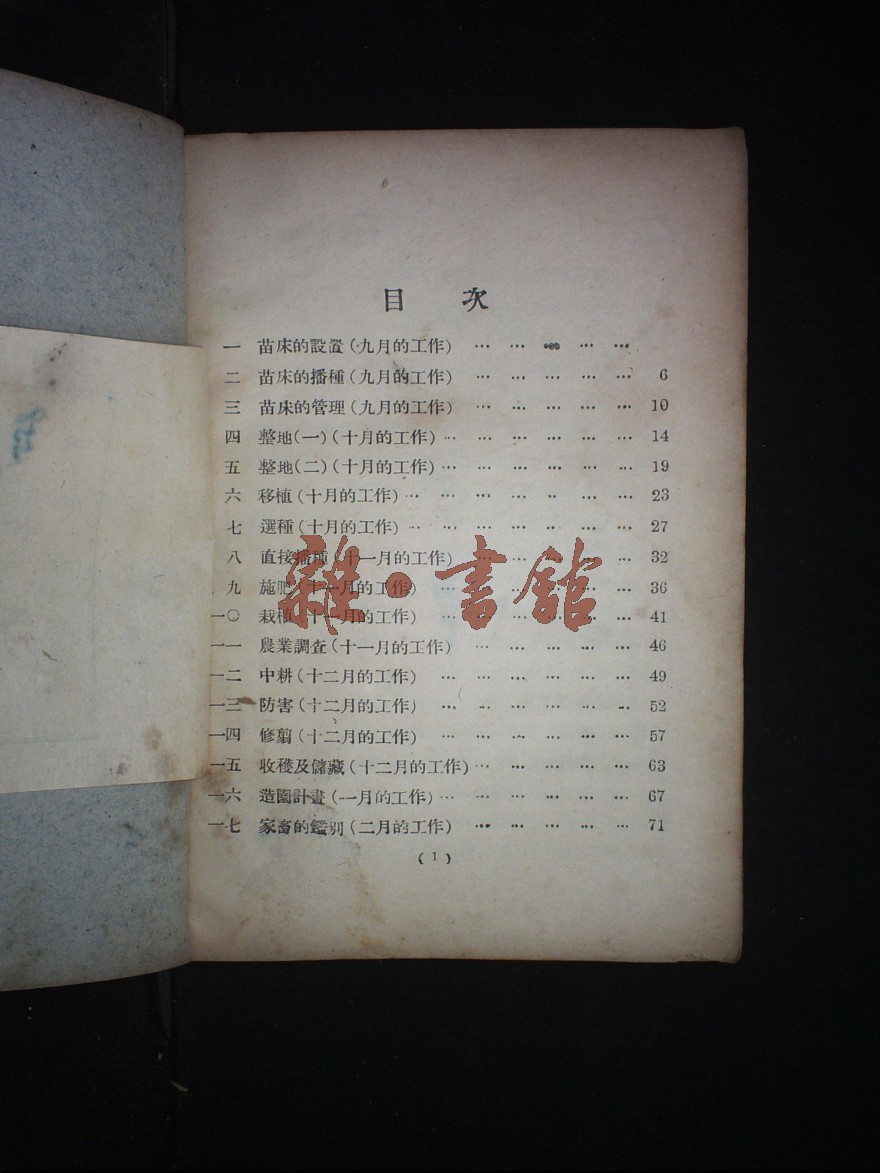 目 次
一 苗床的設置(九月的工作) … … … … …
二 苗床的播種(九月的工作) … … … … … 6
三 苗床的管理(九月的工作) … … … … … 10
四 整地(一)(十月的工作) … … … … … … 14
五 整地(二)(十月的工作) … … … … … … 19
六 移植(十月的工作) … … … … … … … 23
七 選種(十月的工作) … … … … … … … 27
八 直接播種(十一月的工作) … … … … … 32
九 施肥(十一月的工作) … … … … … … 36
一〇 栽植(十一月的工作) … … … … … … 41
一一 農業調查(十一月的工作) … … … … … 46
一二 中耕(十二月的工作) … … … … … … 49
一三 防害(十二月的工作) … … … … … … 52
一四 修剪(十二月的工作) … … … … … … 57
一五 收穫及儲藏(十二月的工作) … … … … … 63
一六 造園計畫(一月的工作) … … … … … … 67
一七 家畜的鑑別(二月的工作) … … … … … 71
(1)
雜·書館